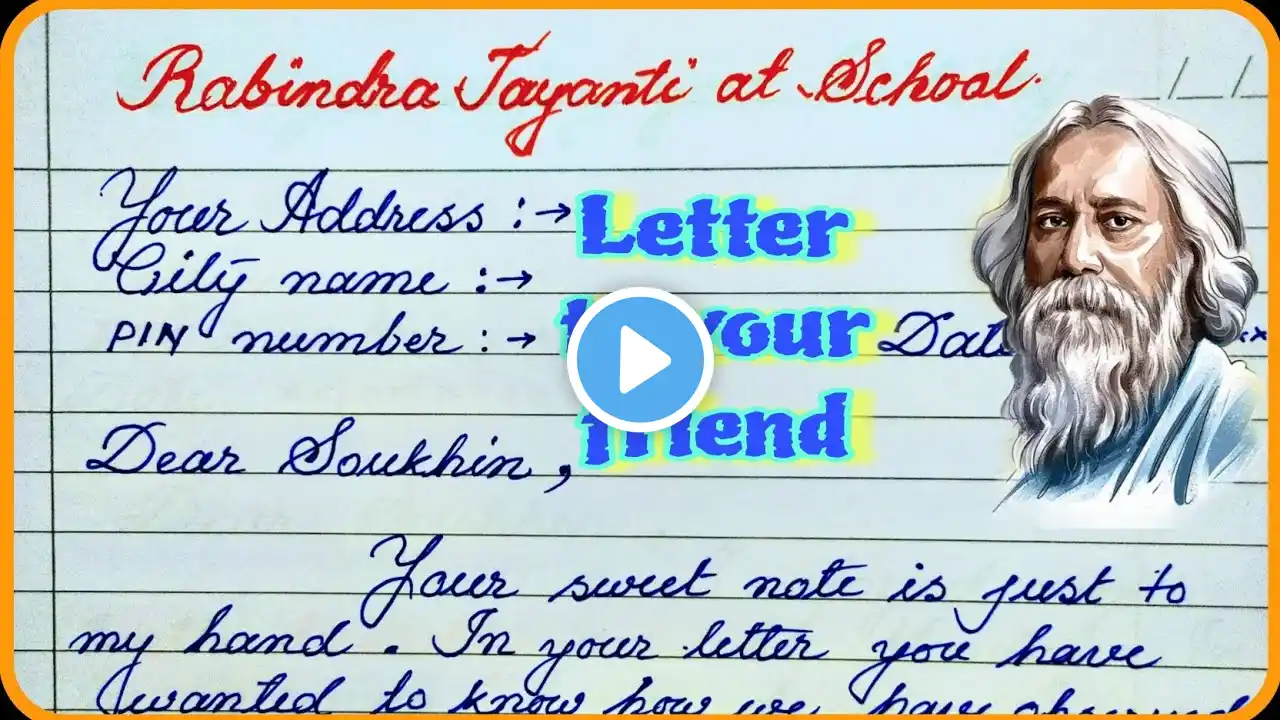 Rabindra Jayanti at School.
/ /
Your Address :→
City name :→
PIN number :→
Letter
your
friend
Dear Soukhin,
Your sweet note is just to
my hand. In your letter you have
wanted to know how we have observed